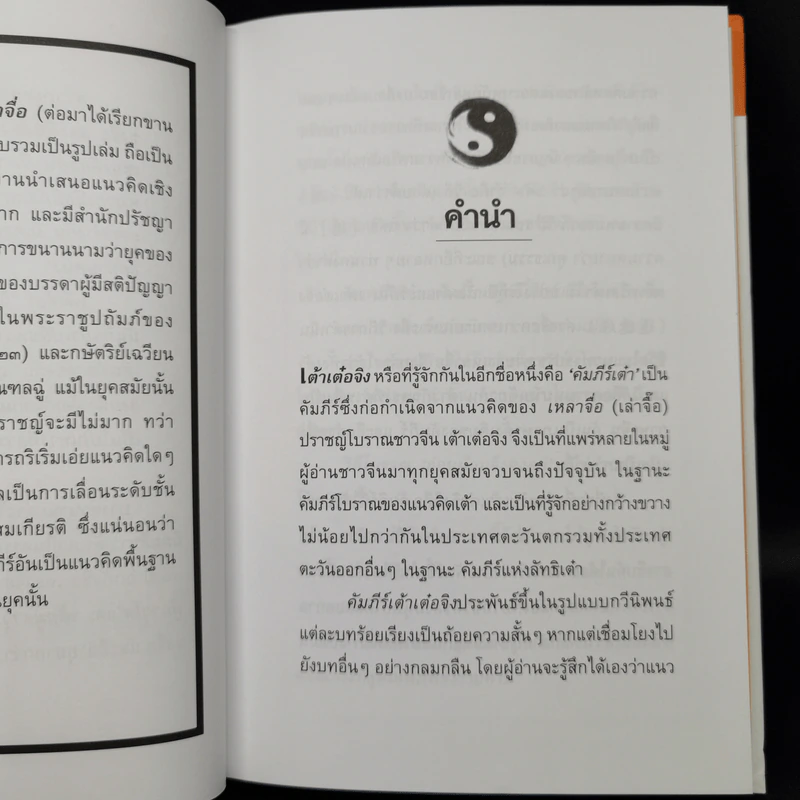 จื่อ (ต่อมาได้เรียกขาน
บรวมเป็นรูปเล่ม ถือเป็น
านนำเสนอแนวคิดเชิง
าก และมีสำนักปรัชญา
การขนานนามว่ายุคของ
ของบรรดาผู้มีสติปัญญา
ในพระราชูปถัมภ์ของ
๒๓) และกษัตริย์เฉวียน
ณฑลฉู่ แม้ในยุคสมัยนั้น
ราชญ์จะมีไม่มาก ทว่า
ารถริเริ่มเอ่ยแนวคิดใดๆ
ลเป็นการเลื่อนระดับชั้น
สมเกียรติ ซึ่งแน่นอนว่า
ีร์อันเป็นแนวคิดพื้นฐาน
นยุคนั้น
คำนำ
เต้าเต๋อจิง หรือที่รู้จักกันในอีกชื่อหนึ่งคือ ‘คัมภีร์เต๋า’ เป็น
คัมภีร์ซึ่งก่อกำเนิดจากแนวคิดของ เหลาจื่อ (เล่าจื๊อ)
ปราชญ์โบราณชาวจีน เต้าเต๋อจิง จึงเป็นที่แพร่หลายในหมู่
ผู้อ่านชาวจีนมาทุกยุคสมัยจวบจนถึงปัจจุบัน ในฐานะ
คัมภีร์โบราณของแนวคิดเต้า และเป็นที่รู้จักอย่างกว้างขวาง
ไม่น้อยไปกว่ากันในประเทศตะวันตกรวมทั้งประเทศ
ตะวันออกอื่นๆ ในฐานะ คัมภีร์แห่งลัทธิเต๋า
คัมภีร์เต้าเต๋อจิงประพันธ์ขึ้นในรูปแบบกวีนิพนธ์
แต่ละบทร้อยเรียงเป็นถ้อยความสั้นๆ หากแต่เชื่อมโยงไป
ยังบทอื่นๆ อย่างกลมกลืน โดยผู้อ่านจะรู้สึกได้เองว่าแนว